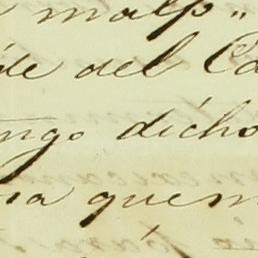 malp"
de del Ca
ngo dicho
na quem